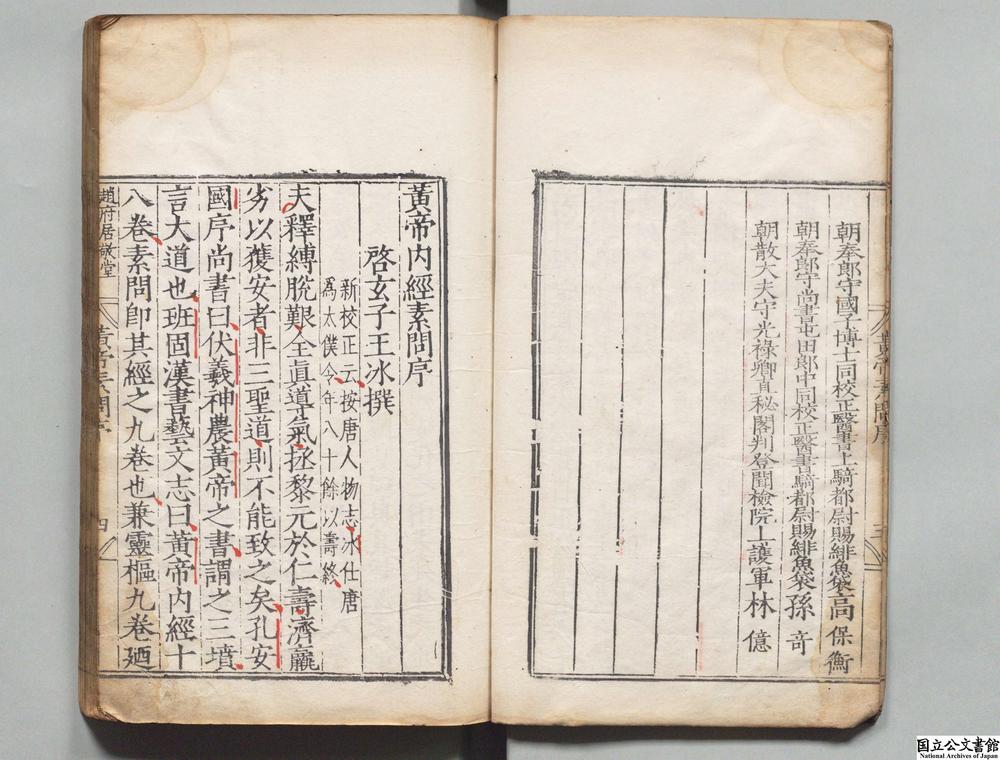 朝奉郎守國子博士同校正醫書上騎都尉賜緋魚袋高保衡
朝奉郎守尚書屯田郎中同校正醫書騎都尉賜緋魚袋孫奇
朝散大夫守光祿卿直秘閣判登聞檢院上護軍林億
黃帝內經素問序
啓玄子王冰撰
新校正云按唐人物志冰仕唐
爲太僕令年八十餘以壽終
夫釋縛脫艱全眞導氣拯黎元於仁壽濟羸
劣以獲安者非三聖道則不能致之矣孔安
國序尚書曰伏羲神農黃帝之書謂之三墳
言大道也班固漢書藝文志曰黃帝內經十
八卷素問卽其經之九卷也兼靈樞九卷廼
趙府居敬堂
黃帝素問序
四
国立公文書館
National Archives of Japan